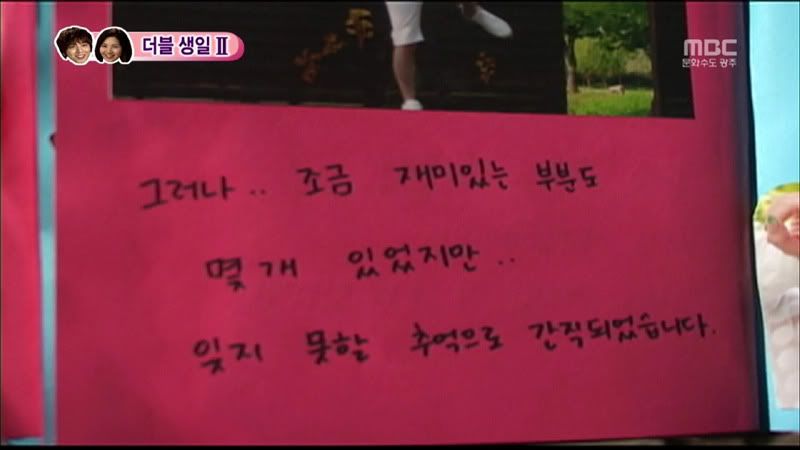 더블 생일 Ⅱ
MBC
문화수도 광주
그러나.. 조금 재미있는 부분도
몇개 있었지만..
잊지 못할 추억으로 간직되었습니다.